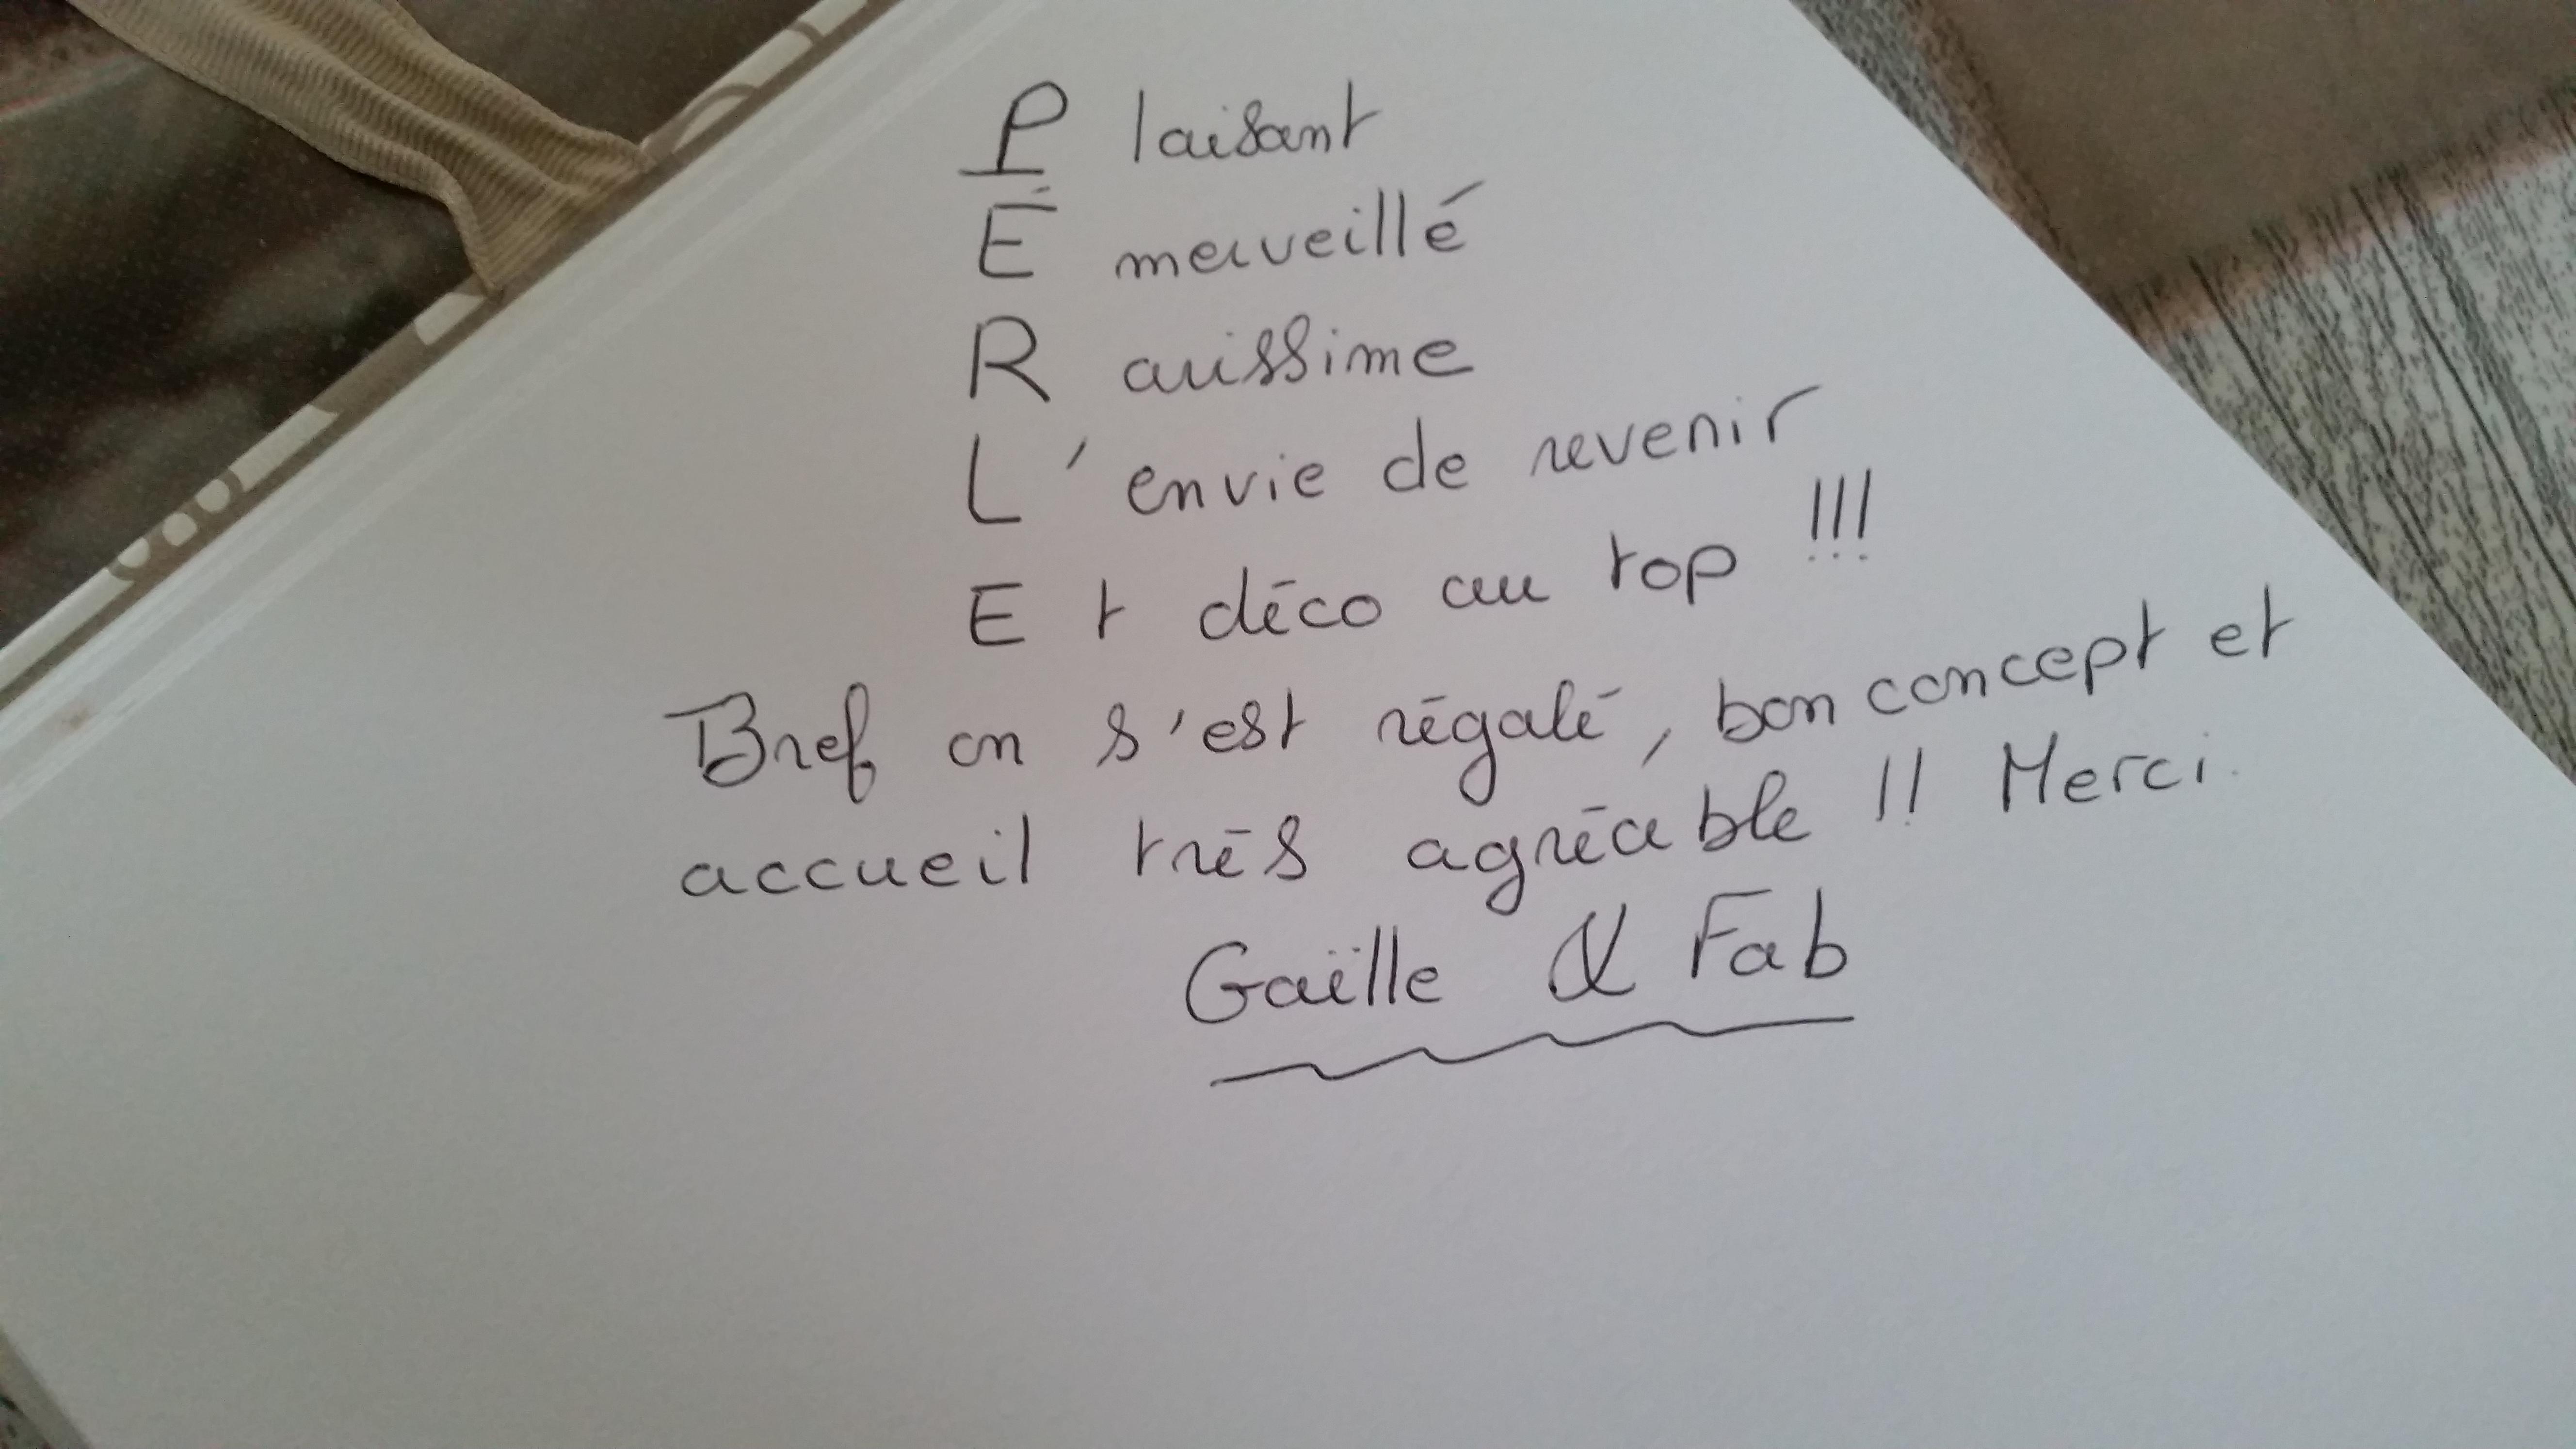 P laisant
É merveillé
R arissime
L' envie de revenir
E t déco au top !!!
Bref on s'est régalé, bon concept et
accueil très agréable !! Merci.
Gaëlle & Fab